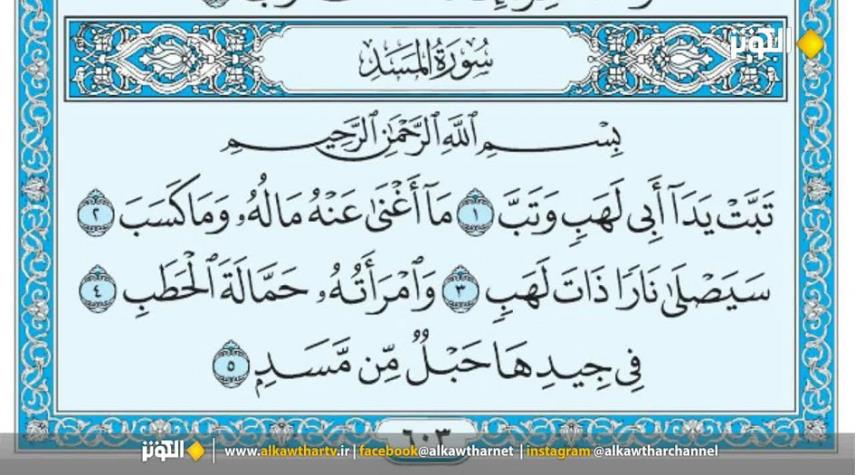 الكوثر
سُورَةُ المَسَدِ
بِسْمِ اللَّهِ الرَّحْمَٰنِ الرَّحِيمِ
تَبَّتْ يَدَآ أَبِى لَهَبٍ وَتَبَّ ١ مَآ أَغْنَىٰ عَنْهُ مَالُهُۥ وَمَا كَسَبَ ٢
سَيَصْلَىٰ نَارًا ذَاتَ لَهَبٍ ٣ وَٱمْرَأَتُهُۥ حَمَّالَةَ ٱلْحَطَبِ ٤
فِى جِيدِهَا حَبْلٌ مِّن مَّسَدٍۭ ٥
٦٠٣
الكوثر www.alkawthartv.ir | facebook@alkawtharnet | instagram @alkawtharchannel